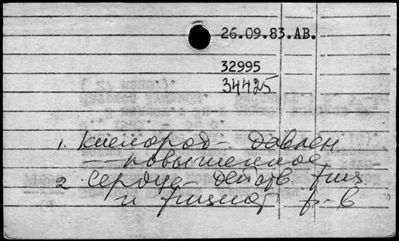 26.09.83.АВ.
32995
34425
1. Кислород - давлен
- повышенное
2. Сердце - действ. физ
и физиол ф-в